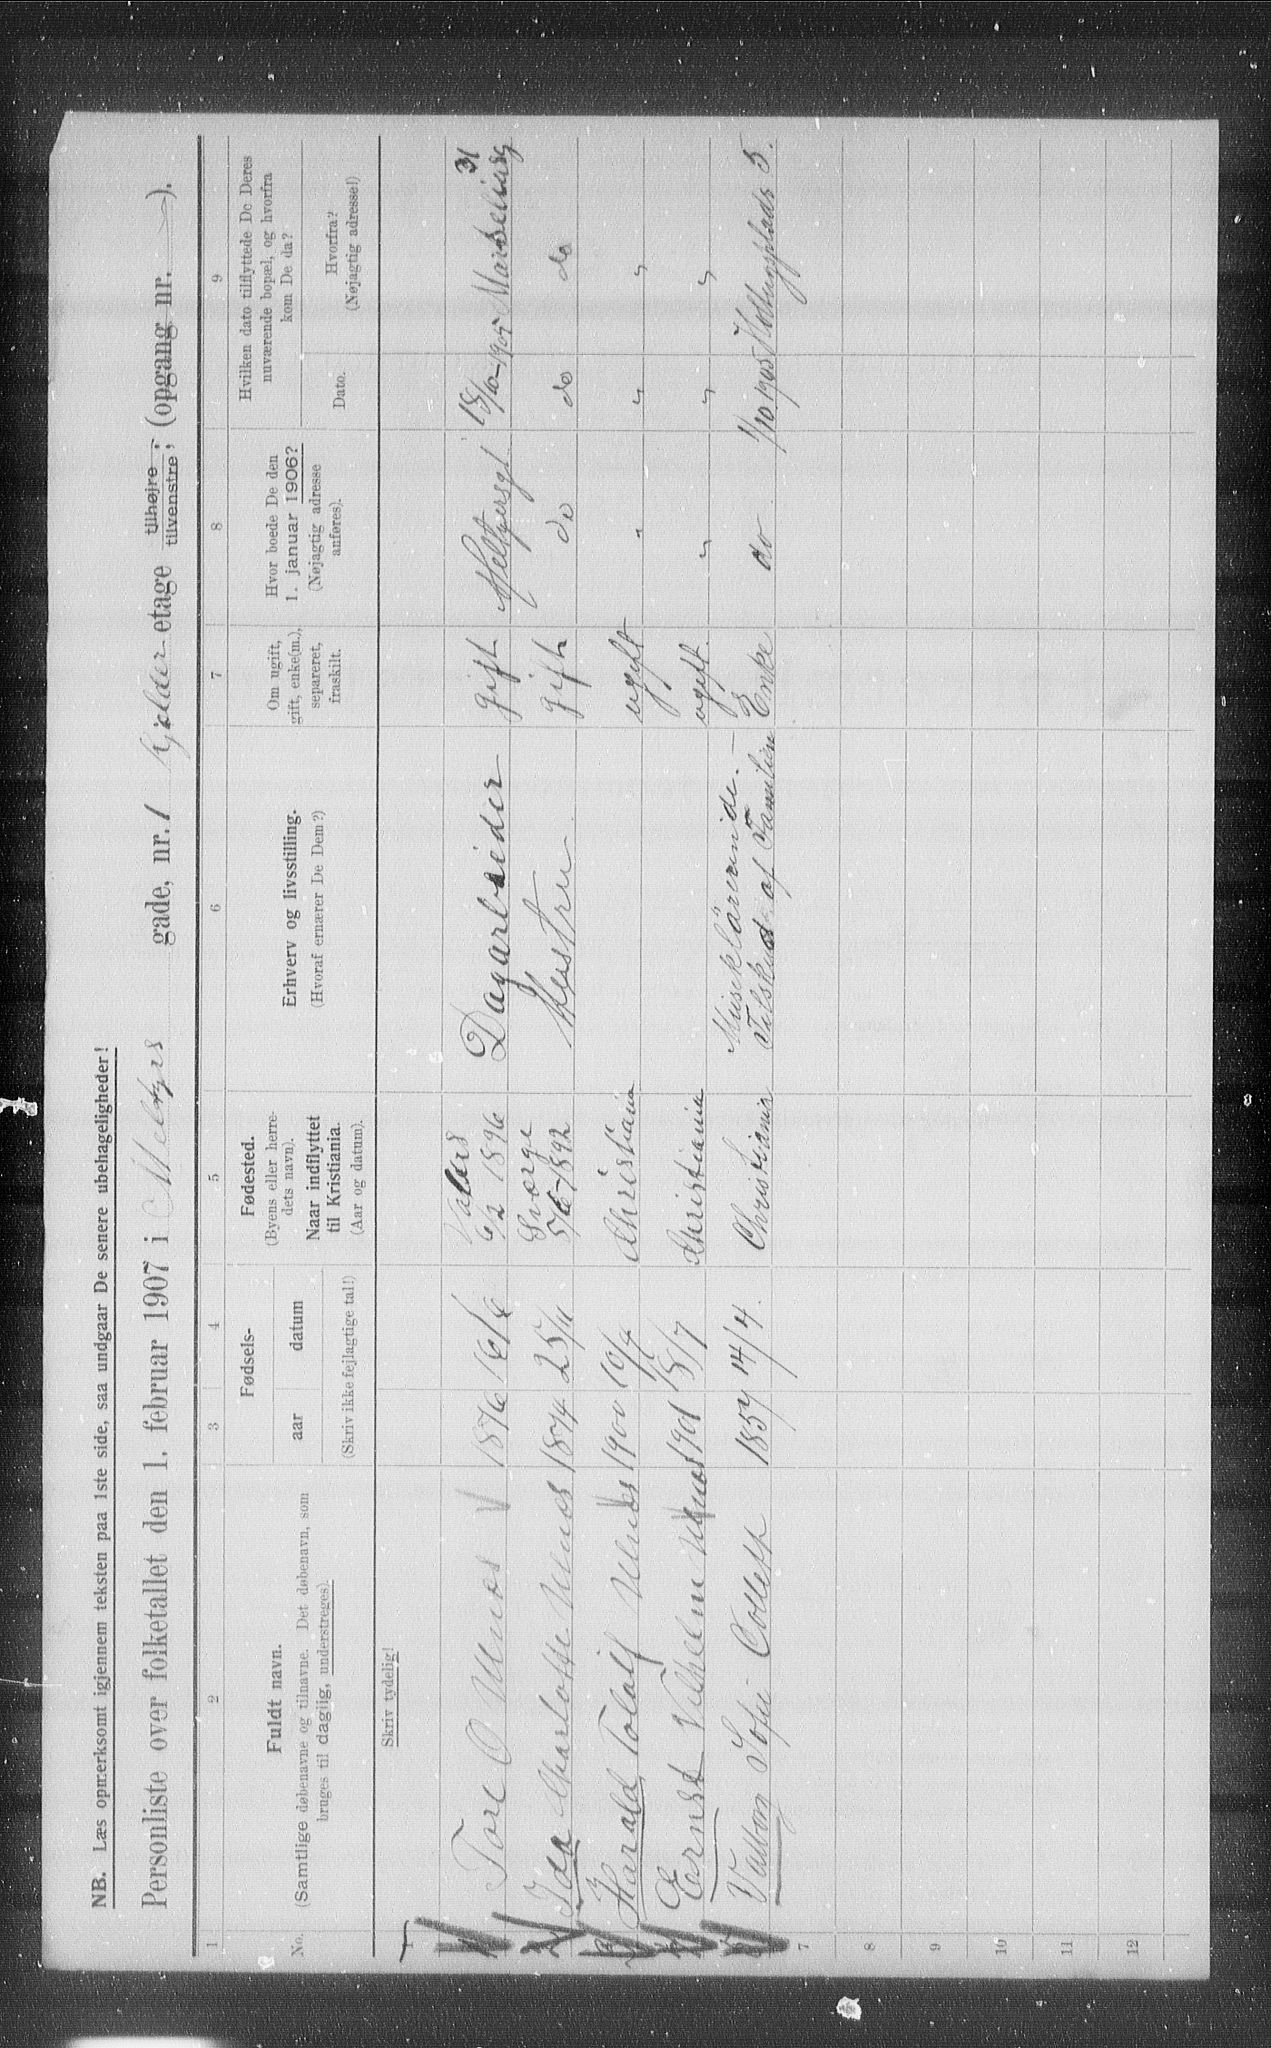 NB. Læs opmerksomt igjennem teksten paa 1ste side, saa undgaar De senere ubehageligheder!
Personliste over folketallet den 1. februar 1907 i Meltzers gade, nr. 1 kjelder etage tilhøjre tilvenstre; (opgang nr. ).
1 2 3 4 5 6 7 8 9
No.
Fuldt navn.
(Samtlige døbenavne og tilnavne. Det døbenavn, som
bruges til daglig, understreges).
Fødsels-
aar datum
(Skriv ikke fejlagtige tal!)
Fødested.
(Byens eller herre-
dets navn).
Naar indflyttet
til Kristiania.
(Aar og datum).
Erhverv og livsstilling.
(Hvoraf ernærer De Dem?)
Om ugift,
gift, enke(m.),
separeret,
fraskilt.
Hvor boede De den
1. januar 1906?
(Nøjagtig adresse
anføres).
Hvilken dato tilflyttede De Deres
nuværende bopæl, og hvorfra
kom De da?
Dato.
Hvorfra?
(Nøjagtig adresse!)
Skriv tydelig!
Tore O Ulnæs 1876 16/6 Valers 6/2 1896 Dagarbeider gift Meltzersgt 1905 31
Ida Charlotte Ulnæs 1874 25/11 Sverge 5/6 1892 Hustru gift do do do
Harald Tolalf Ulnæs 1900 10/4 Christiania ugift " " "
Ernst Vilhelm Ulnæs 1901 15/7 Christiania ugift " " "
Valborg Sofie Collett 1857 14/4. Christiania Musiklärerinde.- Tilskud af Familien Enke do 1/10 1905 Holbergsplads 5.
7
8
9
10
11
12